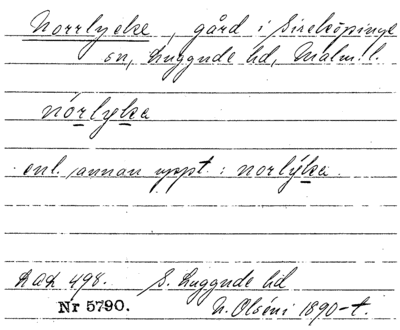 Norrlycke, gård i Sireköpinge
sn, Luggude hd, Malm. l.
nórlyka
enl. annan uppt.: norlýka.
Lad 498. S. Luggude hd
Nr 5790. N. Olséni 1890-t.